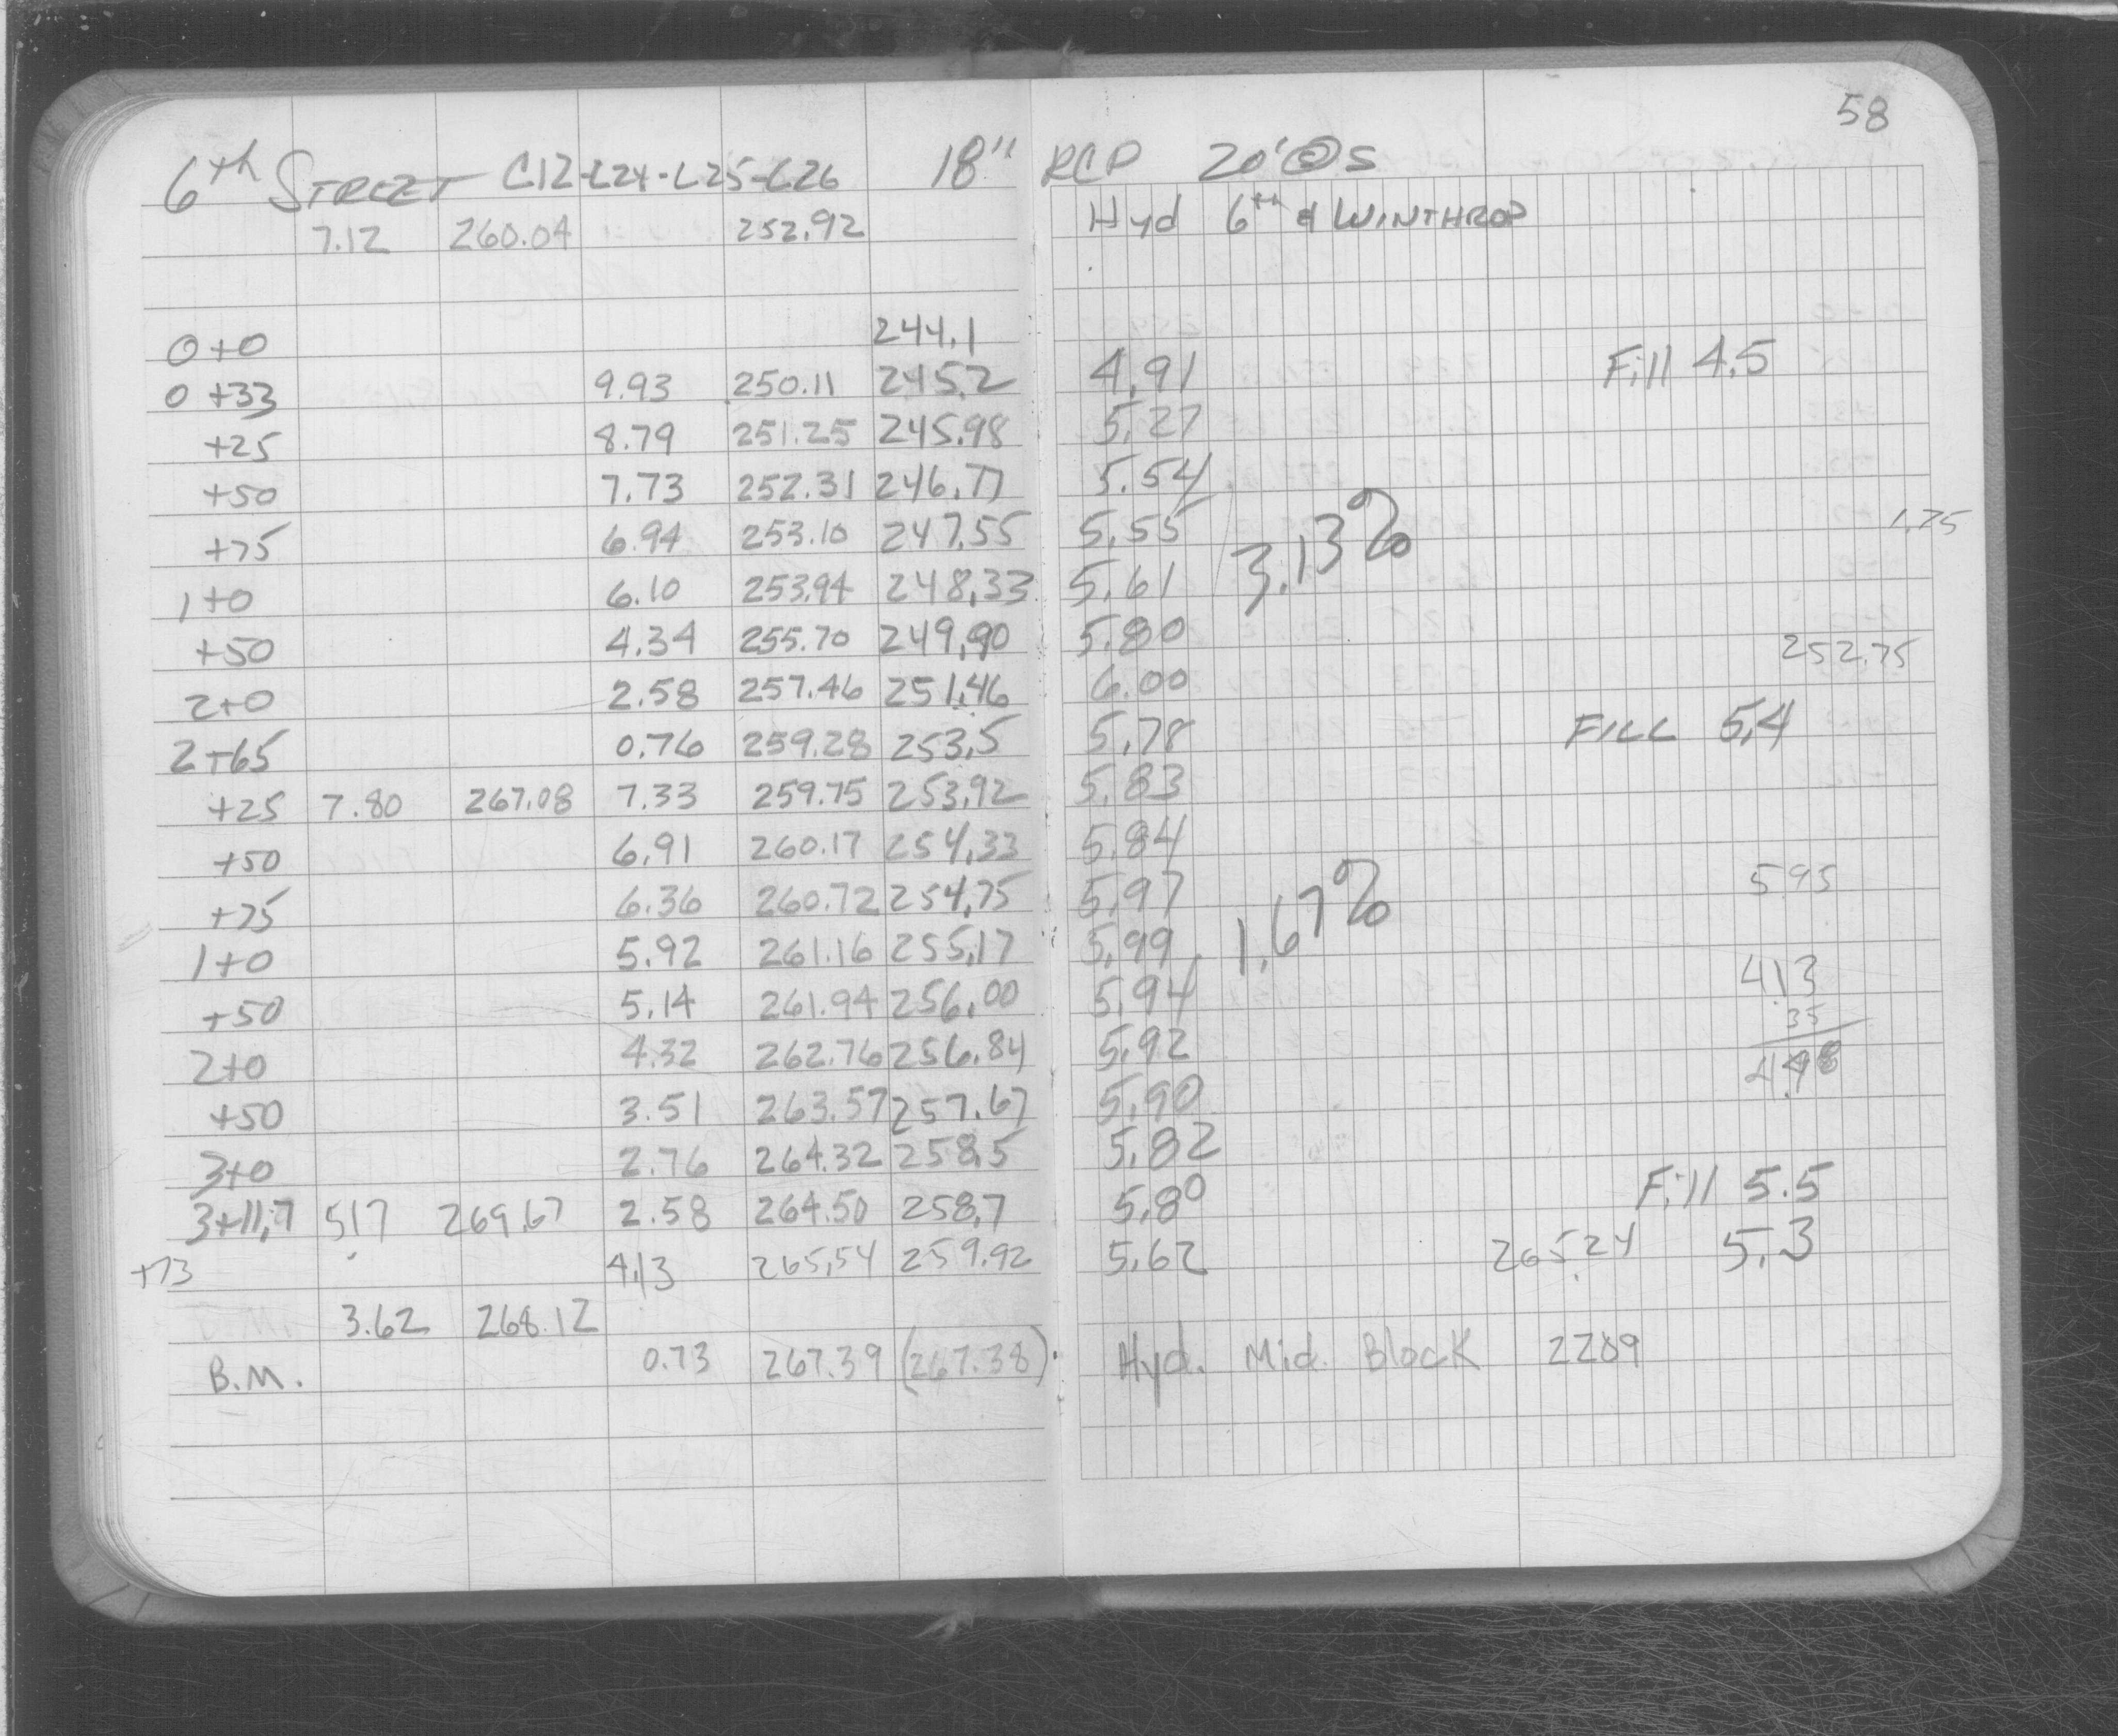 58
6th STREET C12-L24-L25-L26 18" RCP 20'@s
7.12 260.04 252.92 Hyd 6th & WINTHROP
0+0 244.1
0+33 9.93 250.11 245.2 4.91 Fill 4.5
+25 8.79 251.25 245.98 5.27
+50 7.73 252.31 246.77 5.54
+75 6.94 253.10 247.55 5.55 3.13% 1.75
1+0 6.10 253.94 248.33 5.61
+50 4.34 255.70 249.90 5.80 252.75
2+0 2.58 257.46 251.46 6.00
2+65 0.76 259.28 253.5 5.78 FILL 5.4
+25 7.80 267.08 7.33 259.75 253.92 5.83
+50 6.91 260.17 254.33 5.84
+75 6.36 260.72 254.75 5.97 1.67% 5.95
1+0 5.92 261.16 255.17 5.99
+50 5.14 261.94 256.00 5.94 4.13
2+0 4.32 262.76 256.84 5.92 35
+50 3.51 263.57 257.67 5.90
3+0 2.76 264.32 258.5 5.82
3+11.7 5.17 269.67 2.58 264.50 258.7 5.80 Fill 5.5
+73 4.13 265.54 259.92 5.62 265.24 5.3
3.62 268.12
B.M. 0.73 267.39 (267.38) Hyd. Mid. Block 2209